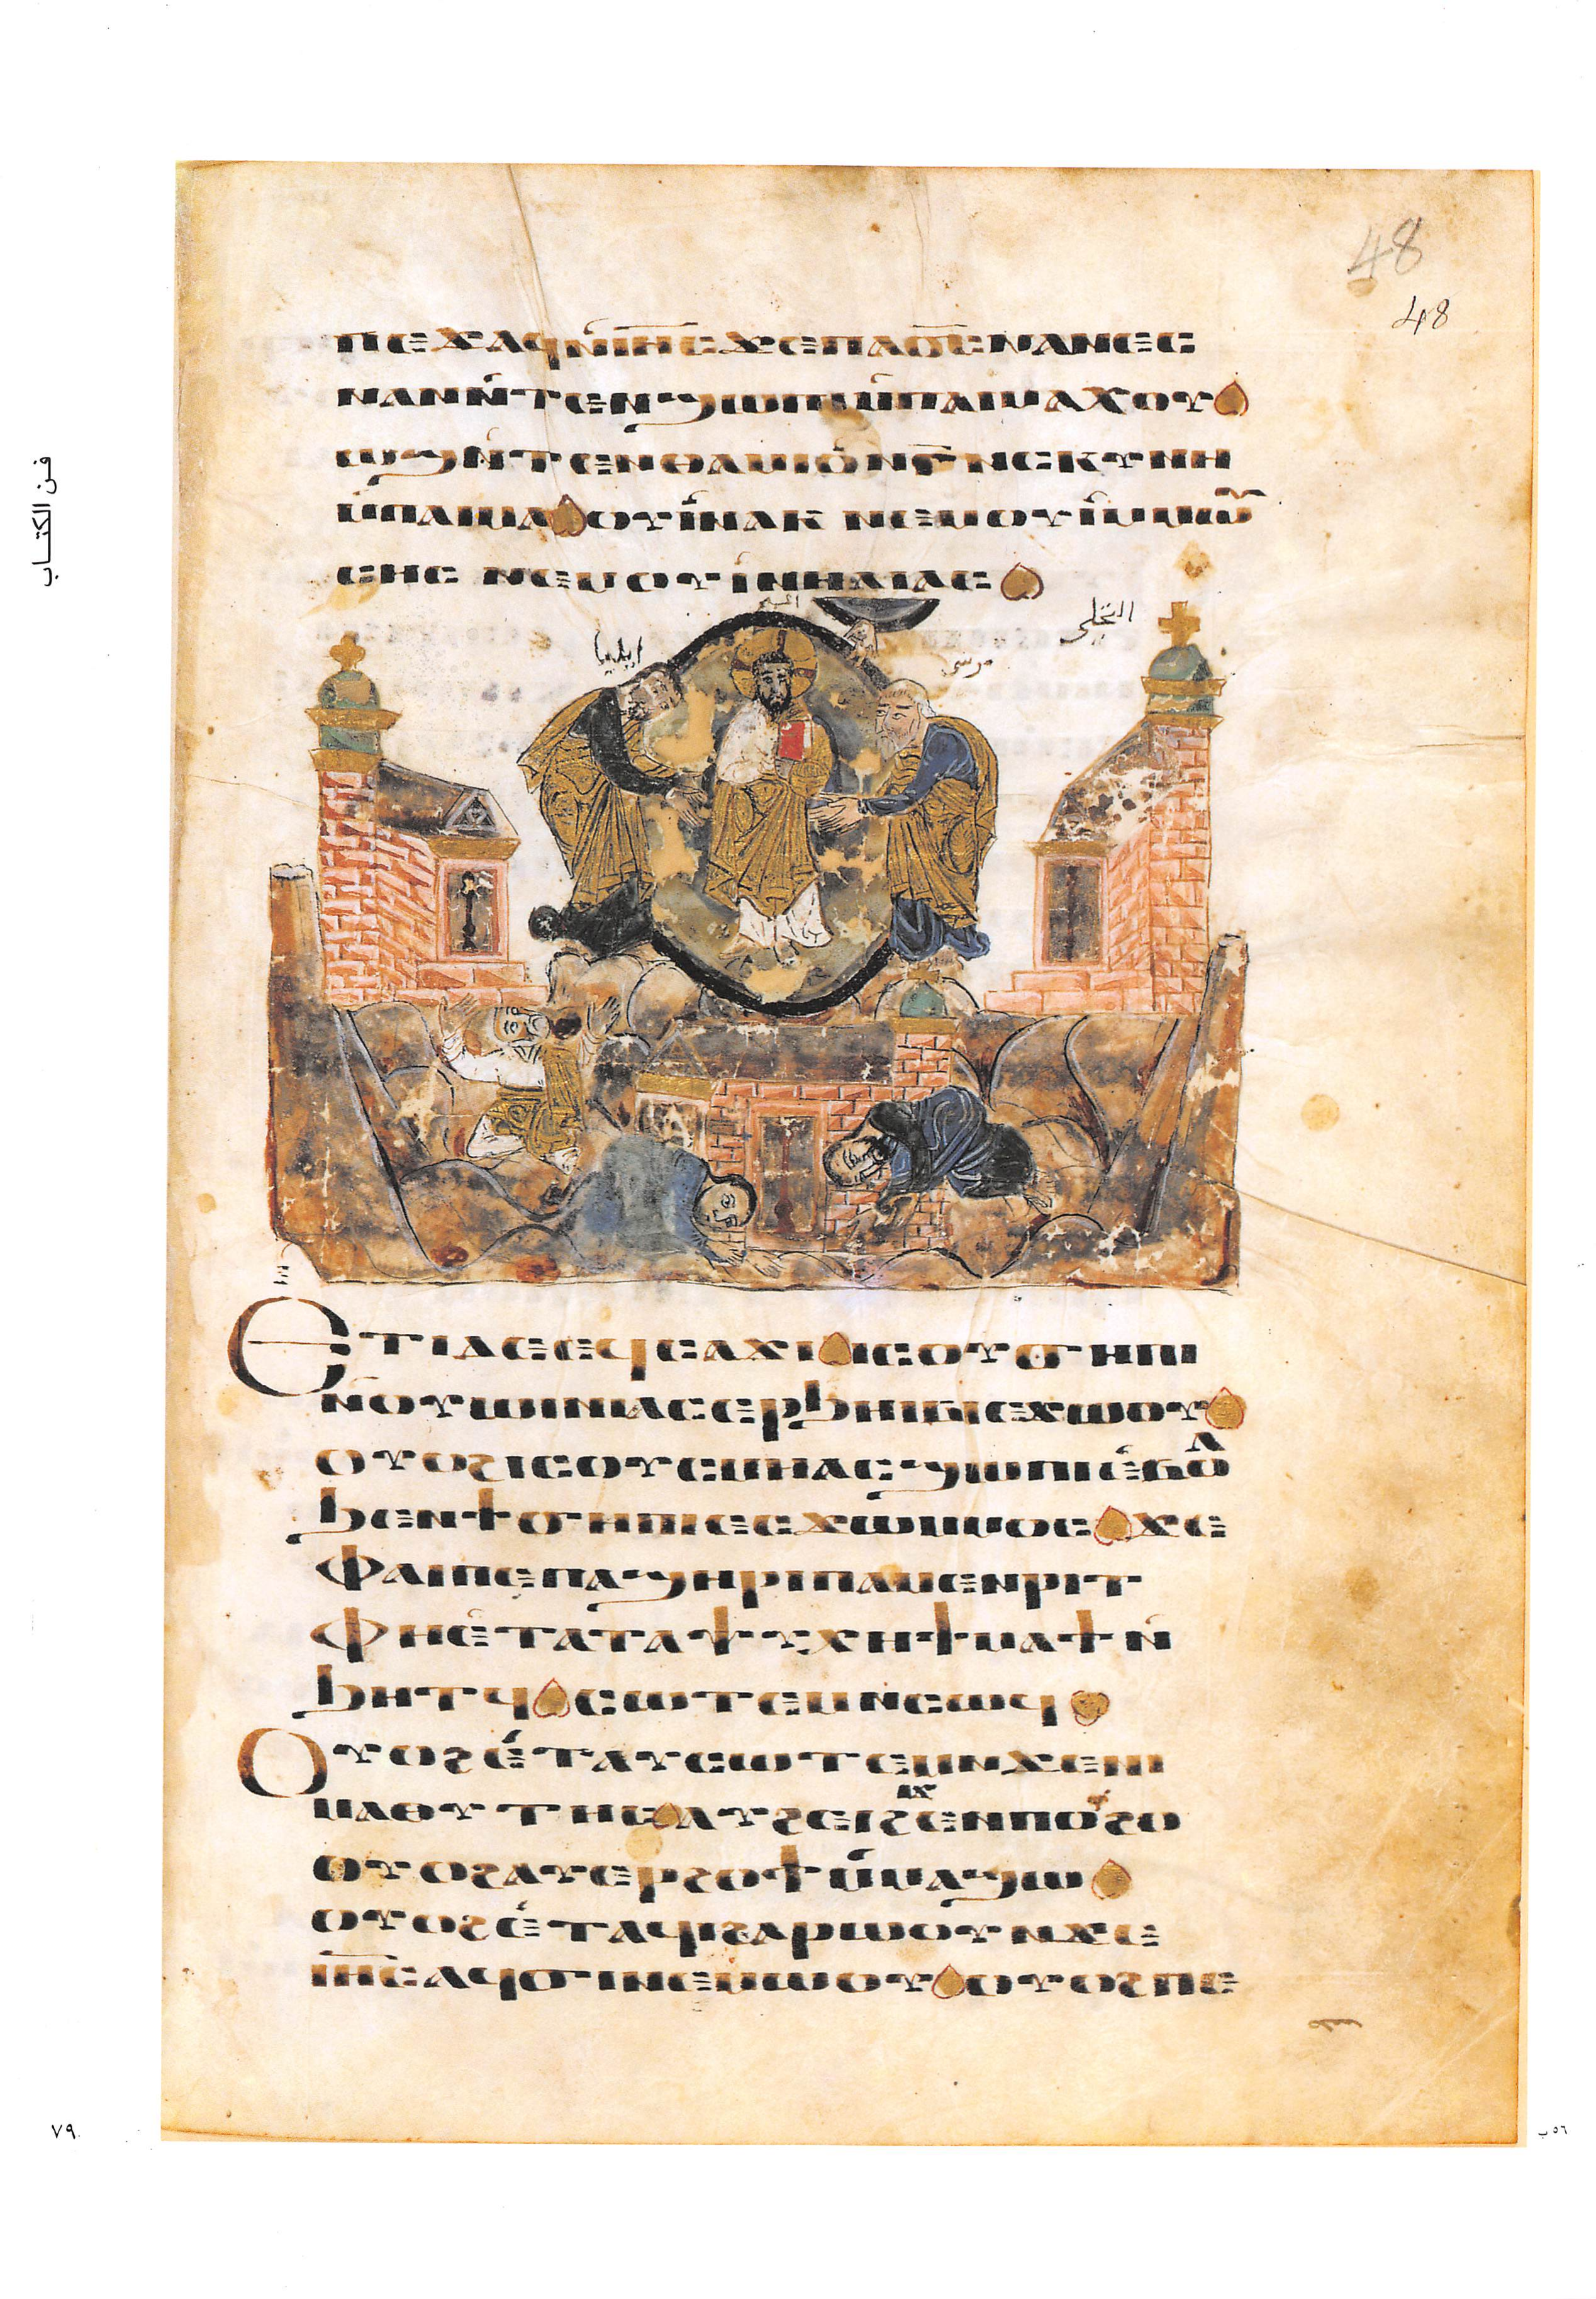 48
48
ⲡⲉϫⲁϥⲛ̀ⲓⲏ̅ⲥ̅ϫⲉⲡⲁⲟ̅ⲥ̅ⲛⲁⲛⲉⲥ
ⲛⲁⲛⲛ̀ⲧⲉⲛϣⲱⲡⲓⲙ̀ⲡⲁⲓⲙⲁⲭⲟⲩ
ⲱϣⲛ̀ⲧⲉⲛⲑⲁⲙⲓⲟ̀ⲛ̀ⲅ̅ⲛ̀ⲥⲕⲩⲛⲏ
ⲙ̀ⲡⲁⲓⲙⲁⲟⲩⲓ̀ⲛⲁⲕ ⲛⲉⲙⲟⲩⲓ̀ⲙ̀ⲙⲱⲩ̀
ⲥⲏⲥ ⲛⲉⲙⲟⲩⲓ̀ⲛ̀ⲏⲗⲓⲁⲥ
المسيح
التجلي
ايليا
موسى
Ⲉⲧⲓⲇⲉⲉϥⲥⲁϫⲓⲓⲥⲟⲩϭⲏⲡⲓ
ⲛ̀ⲟⲩⲱⲓⲛⲓⲁⲥⲉⲣϧⲏⲓⲃⲓⲉϫⲱⲟⲩ
ⲟⲩⲟϩⲓⲥⲟⲩⲥⲙⲏⲁⲥϣⲱⲡⲓⲉ̀ⲃⲟⲗ
ϧⲉⲛϯϭⲏⲡⲓⲉⲥϫⲱⲙⲙⲟⲥϫⲉ
ⲫⲁⲓⲡⲉⲡⲁϣⲏⲣⲓⲡⲁⲙⲉⲛⲣⲓⲧ
ⲫⲏⲉ̀ⲧⲁⲧⲁⲯⲩⲭⲏϯⲙⲁϯⲛ̀
ϧⲏⲧϥⲥⲱⲧⲉⲙⲛⲥⲱϥ
Ⲟⲩⲟϩⲉ̀ⲧⲁⲩⲥⲱⲧⲉⲙⲛϫⲉⲛⲓ
ⲙⲁⲑⲏⲧⲏⲥⲁⲩϩⲉⲓϩⲓϫⲉⲛⲡⲟⲩϩⲟ
ⲟⲩⲟϩⲁⲩⲉⲣϩⲟϯⲙ̀ⲙⲁϣⲱ
ⲟⲩⲟϩⲉ̀ⲧⲁϥⲭⲁⲣⲱⲟⲩⲛϫⲉ
ⲓⲏ̅ⲥ̅ⲁϥϭⲓⲛⲉⲙⲱⲟⲩⲟⲩⲟϩⲡⲉ
فن الكتاب
٧٩
٥٦ب